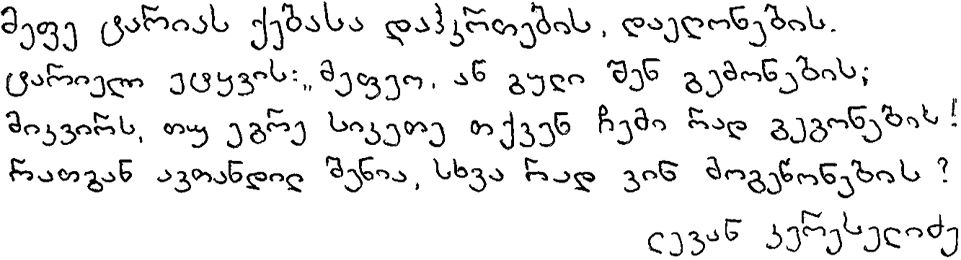 მეფე ტარიას ქებასა დაჰკრთების, დაეღონების.
ტარიელ ეტყვის: „მეფეო, ან გული შენ გემონების;
მიკვირს, თუ ეგრე სიკეთე თქვენ ჩემი რად გეგონების!
რათგან ავთანდილ შენია, სხვა რად ვინ მოგეწონების?
ლევან კერესელიძე